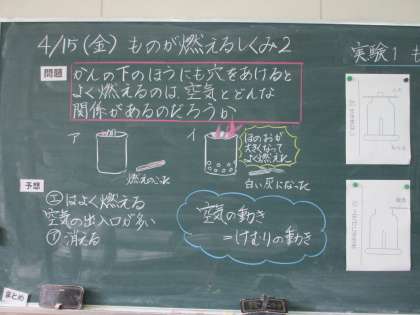 4/15(金) ものが燃えるしくみ2
実験1 も
問題
かんの下のほうにも穴をあけると
よく燃えるのは、空気とどんな
関係があるのだろうか
ア
イ
ほのおが
大きくなって
よく燃えた
燃えのこった
白い灰になった
予想
㋓はよく燃える
空気の出入口が多い
㋒消える
空気の動き
=けむりの動き
まとめ